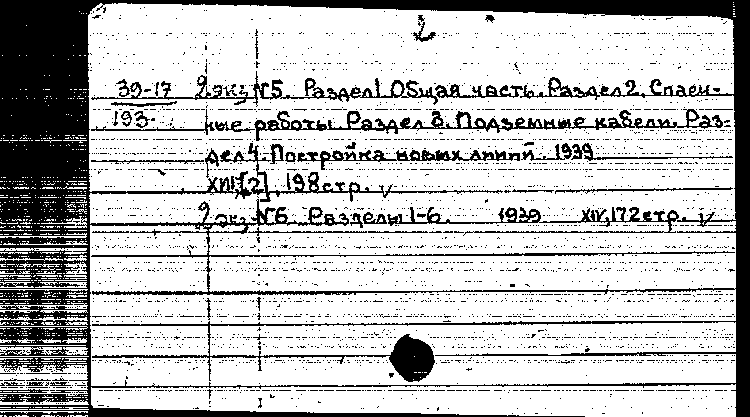 2
39-17 2 экз. №5. Раздел 1 Общая часть. Раздел 2. Спаеч-
193. ные работы. Раздел 3. Подземные кабели. Раз-
дел 4. Постройка новых линий. 1939
XIII, [2], 198 стр. √
2 экз. №6. Разделы 1-6. 1939 XIV, 172 стр. √